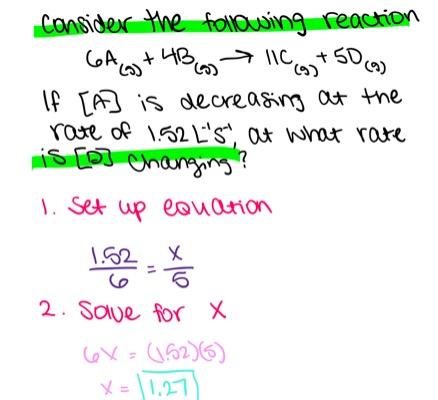 Consider the following reaction
6A(g) + 4B(g) → 11C(g) + 5D(g)
If [A] is decreasing at the
rate of 1.52 L⁻¹S⁻¹, at what rate
is [D] changing?
1. Set up equation
1.52/6 = x/5
2. Solve for x
6x = (1.52)(5)
x = 1.27